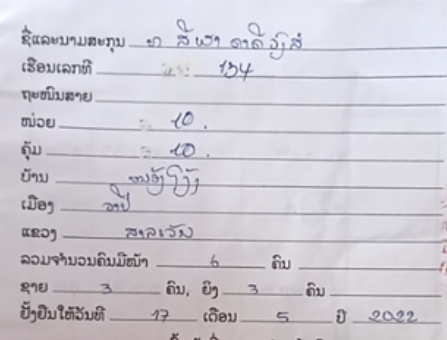 ຊື່ແລະນາມສະກຸນ ທ ສີພາ ດາດີວົງສ໌
ເຮືອນເລກທີ 134
ຖະໜົນສາຍ
ໜ່ວຍ 10.
ຄຸ້ມ 10.
ບ້ານ ໜອງໂງ້ງ
ເມືອງ ວາປີ
ແຂວງ ສາລະວັນ
ລວມຈຳນວນຄົນມີໜ້າ 6 ຄົນ
ຊາຍ 3 ຄົນ, ຍິງ 3 ຄົນ
ຢັ້ງຢືນໃຫ້ວັນທີ 17 ເດືອນ 5 ປີ 2022